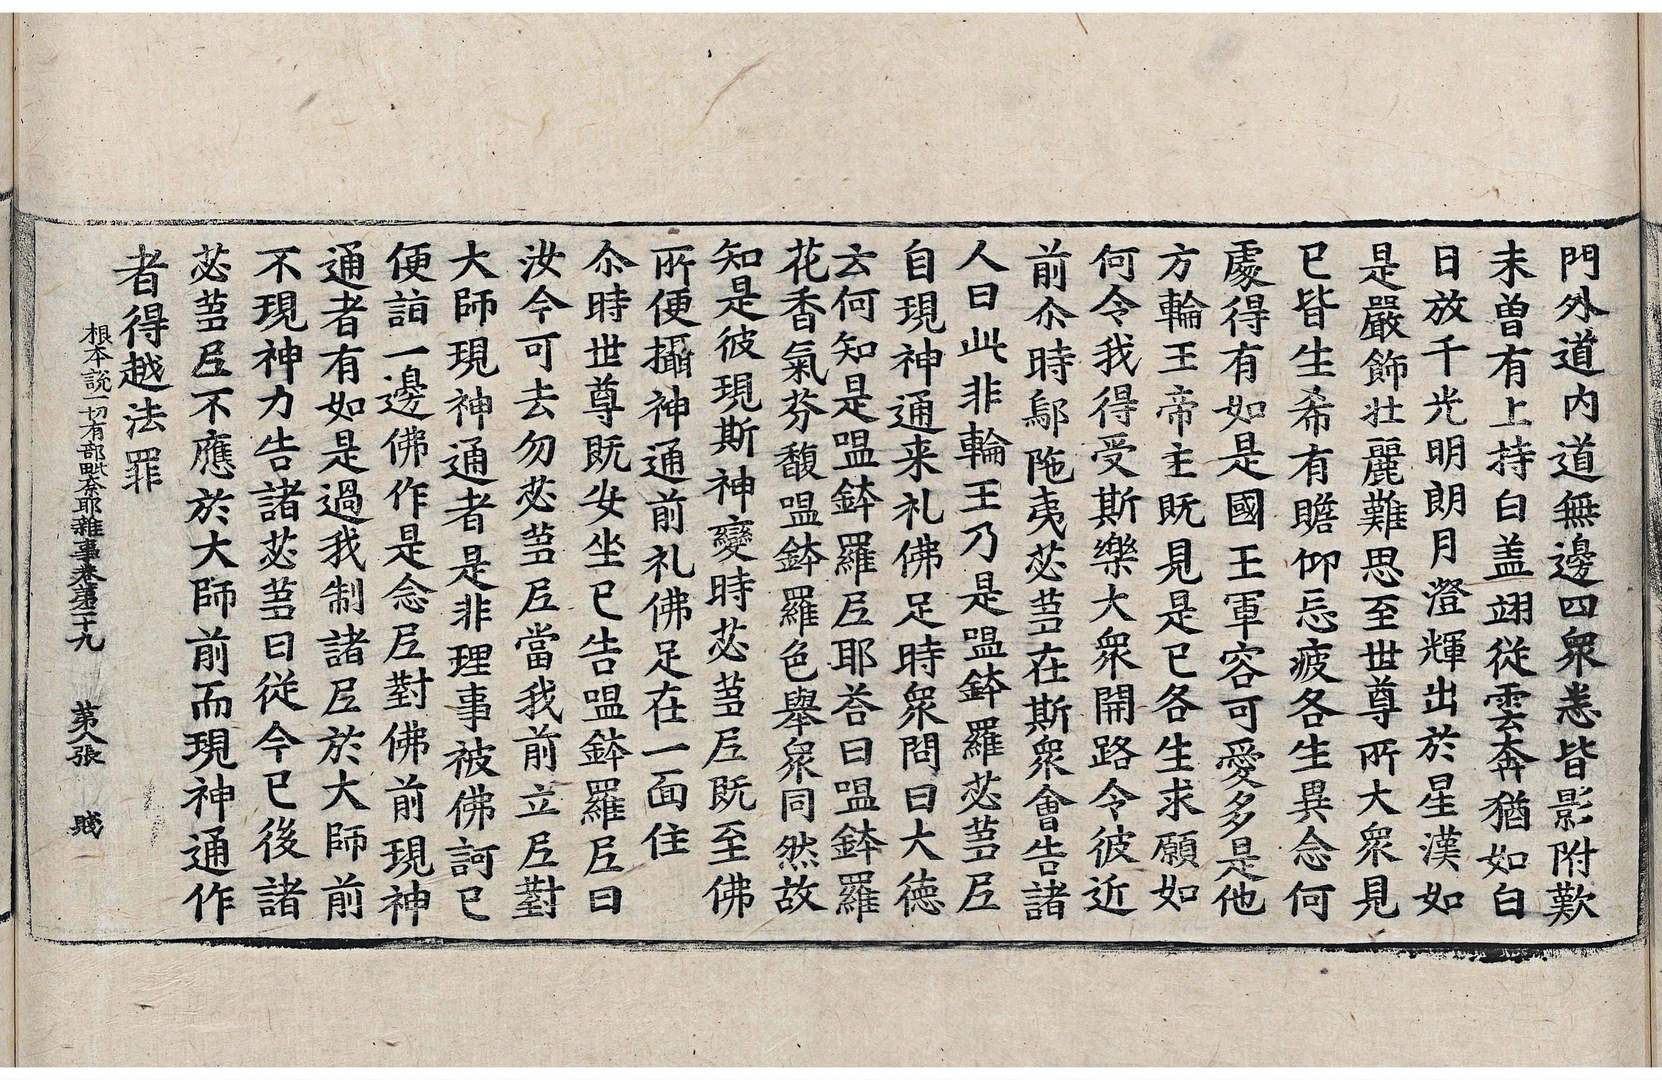 門外道内道無邊四衆悉皆影附歎
未曽有上持白盖翊從雲奔猶如白
日放千光明朗月澄輝出於星漢如
是嚴飾壮麗難思至世尊所大衆見
已皆生希有瞻仰忘疲各生異念何
處得有如是國王軍容可愛多是他
方輪王帝主既見是已各生求願如
何令我得受斯樂大衆開路令彼近
前尒時鄔陁夷苾蒭在斯衆會告諸
人曰此非輪王乃是嗢鉢羅苾蒭尼
自現神通来礼佛足時衆問曰大德
云何知是嗢鉢羅尼耶荅曰嗢鉢羅
花香氣芬馥嗢鉢羅色舉衆同然故
知是彼現斯神變時苾蒭尼既至佛
所便攝神通前礼佛足在一面住
尒時世尊既安坐已告嗢鉢羅尼曰
汝今可去勿苾蒭尼當我前立尼對
大師現神通者是非理事被佛訶已
便詣一邊佛作是念尼對佛前現神
通者有如是過我制諸尼於大師前
不現神力告諸苾蒭曰從今已後諸
苾蒭尼不應於大師前而現神通作
者得越法罪
根本說一切有部毗奈耶雜事卷第二十九 第八張 賤